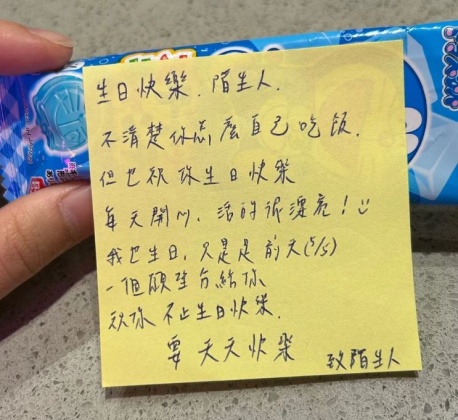 生日快樂、陌生人、
不清楚你為麼自己吃飯、
但也祝你生日快樂
每天開心、活的很漂亮！
我也生日、只是是前天(5/5)
一個願望分給你
祝你不止生日快樂、
要天天快樂
致陌生人